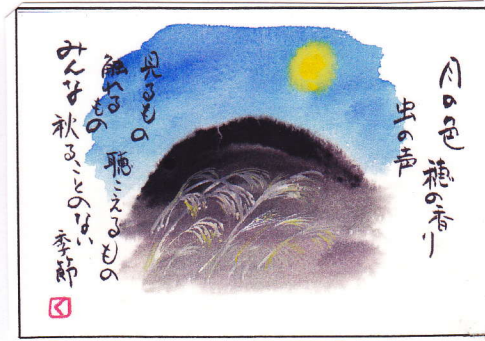 月の色
穂の香り
虫の声
見るもの
触れるもの
聴こえるもの
みんな秋ることのない
季節
く